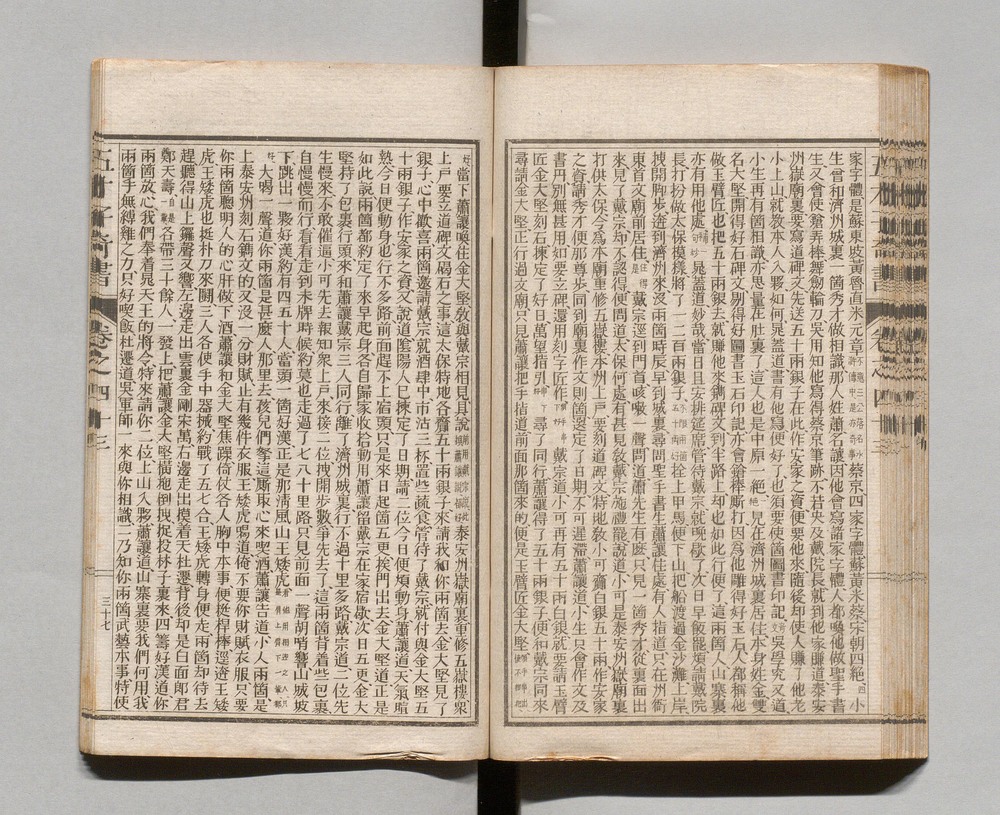 家字體是蘇東坡黃魯直米元章蔡京四家字體蘇黃米蔡宋朝四絕小
生曾和濟州城裏一箇秀才做相識那人姓蕭名讓因他會寫諸家字體人都喚他做聖手書
生又會使鎗弄棒舞劍輪刀吳用知他寫得蔡京筆跡不若央及戴院長就到他家賺道泰安
州嶽廟裏要寫道碑文先送五十兩銀子在此作安家之資便要他來隨後却使人賺了他老
小上山就教本人入夥如何晁蓋道書有他寫便好了也須要使箇圖書印記吳學究又道
小生再有箇相識亦思量在肚裏了這人也是中原一絕見在濟州城裏居住本身姓金雙
名大堅開得好石碑文剔得好圖書玉石印記亦會鎗棒廝打因爲他雕得好玉石人都稱他
做玉臂匠也把五十兩銀去就賺他來鐫碑文到半路上却也如此行便了這兩箇人山寨裏
亦有用他處晁蓋道妙哉當日且安排筵席管待戴宗就晚歇了次日早飯罷煩請戴院
長打扮做太保模樣將了一二百兩銀子拴上甲馬便下山把船渡過金沙灘上岸
拽開脚步逩到濟州來沒兩箇時辰早到城裏尋問聖手書生蕭讓住處有人指道只在州衙
東首文廟前居住戴宗逕到門首咳嗽一聲問道蕭先生有麽只見一箇秀才從裏面出
來見了戴宗却不認得便問道太保何處有甚見教戴宗施禮罷說道小可是泰安州嶽廟裏
打供太保今爲本廟重修五嶽樓本州上戶要刻道碑文特地教小可齎白銀五十兩作安家
之資請秀才便那尊步同到廟裏作文則箇選定了日期不可遲滯蕭讓道小生只會作文及
書丹別無甚用如要立碑還用刻字匠作戴宗道小可再有五十兩白銀就要請玉臂
匠金大堅刻石揀定了好日萬望指引尋了同行蕭讓得了五十兩銀子便和戴宗同來
尋請金大堅正行過文廟只見蕭讓把手指道前面那箇來的便是玉臂匠金大堅
好當下蕭讓喚住金大堅教與戴宗相見具說泰安州嶽廟裏重修五嶽樓衆
上戶要立道碑文碣石之事這太保特地各齎五十兩銀子來請我和你兩箇去金大堅見了
銀子心中歡喜兩箇邀請戴宗就酒肆中市沽三杯置些蔬食管待了戴宗就付與金大堅五
十兩銀子作安家之資又說道陰陽人已揀定了日期請二位今日便煩動身蕭讓道天氣暄
熱今日便動身也行不多路前面趕不上宿頭只是來日起箇五更挨門出去金大堅道正是
如此說兩箇都約定了來早起身各自歸家收拾動用蕭讓留戴宗在家宿歇次日五更金大
堅持了包裹行頭來和蕭讓戴宗三人同行離了濟州城裏行不過十里多路戴宗道二位先
生慢來不敢催逼小可先去報知衆上戶來接二位拽開步數爭先去了這兩箇背着些包裹
自慢慢而行看看走到未牌時候約莫也走過了七八十里路只見前面一聲胡哨響山城坡
下跳出一夥好漢約有四五十人當頭一箇好漢正是那淸風山王矮虎
好大喝一聲道你兩箇是甚麼人那里去孩兒們拏這廝取心來喫酒蕭讓告道小人兩箇是
上泰安州刻石鐫文的又沒一分財賦止有幾件衣服王矮虎喝道俺不要你財賦衣服只要
你兩箇聰明人的心肝做下酒蕭讓和金大堅焦躁倚仗各人胸中本事便挺桿棒逕逩王矮
虎王矮虎也挺朴刀來鬬三人各使手中器械約戰了五七合王矮虎轉身便走兩箇却待去
趕聽得山上鑼聲又響左邊走出雲裏金剛宋萬右邊走出摸着天杜遷背後却是白面郎君
鄭天壽各帶三十餘人一發上把蕭讓金大堅橫拖倒拽捉投林子裏來四籌好漢道你
兩箇放心我們奉着晁天王的將令特來請你二位上山入夥蕭讓道山寨裏要我們何用我
兩箇手無縛雞之力只好喫飯杜遷道吳軍師一來與你相識二乃知你兩箇武藝本事特使
三十七